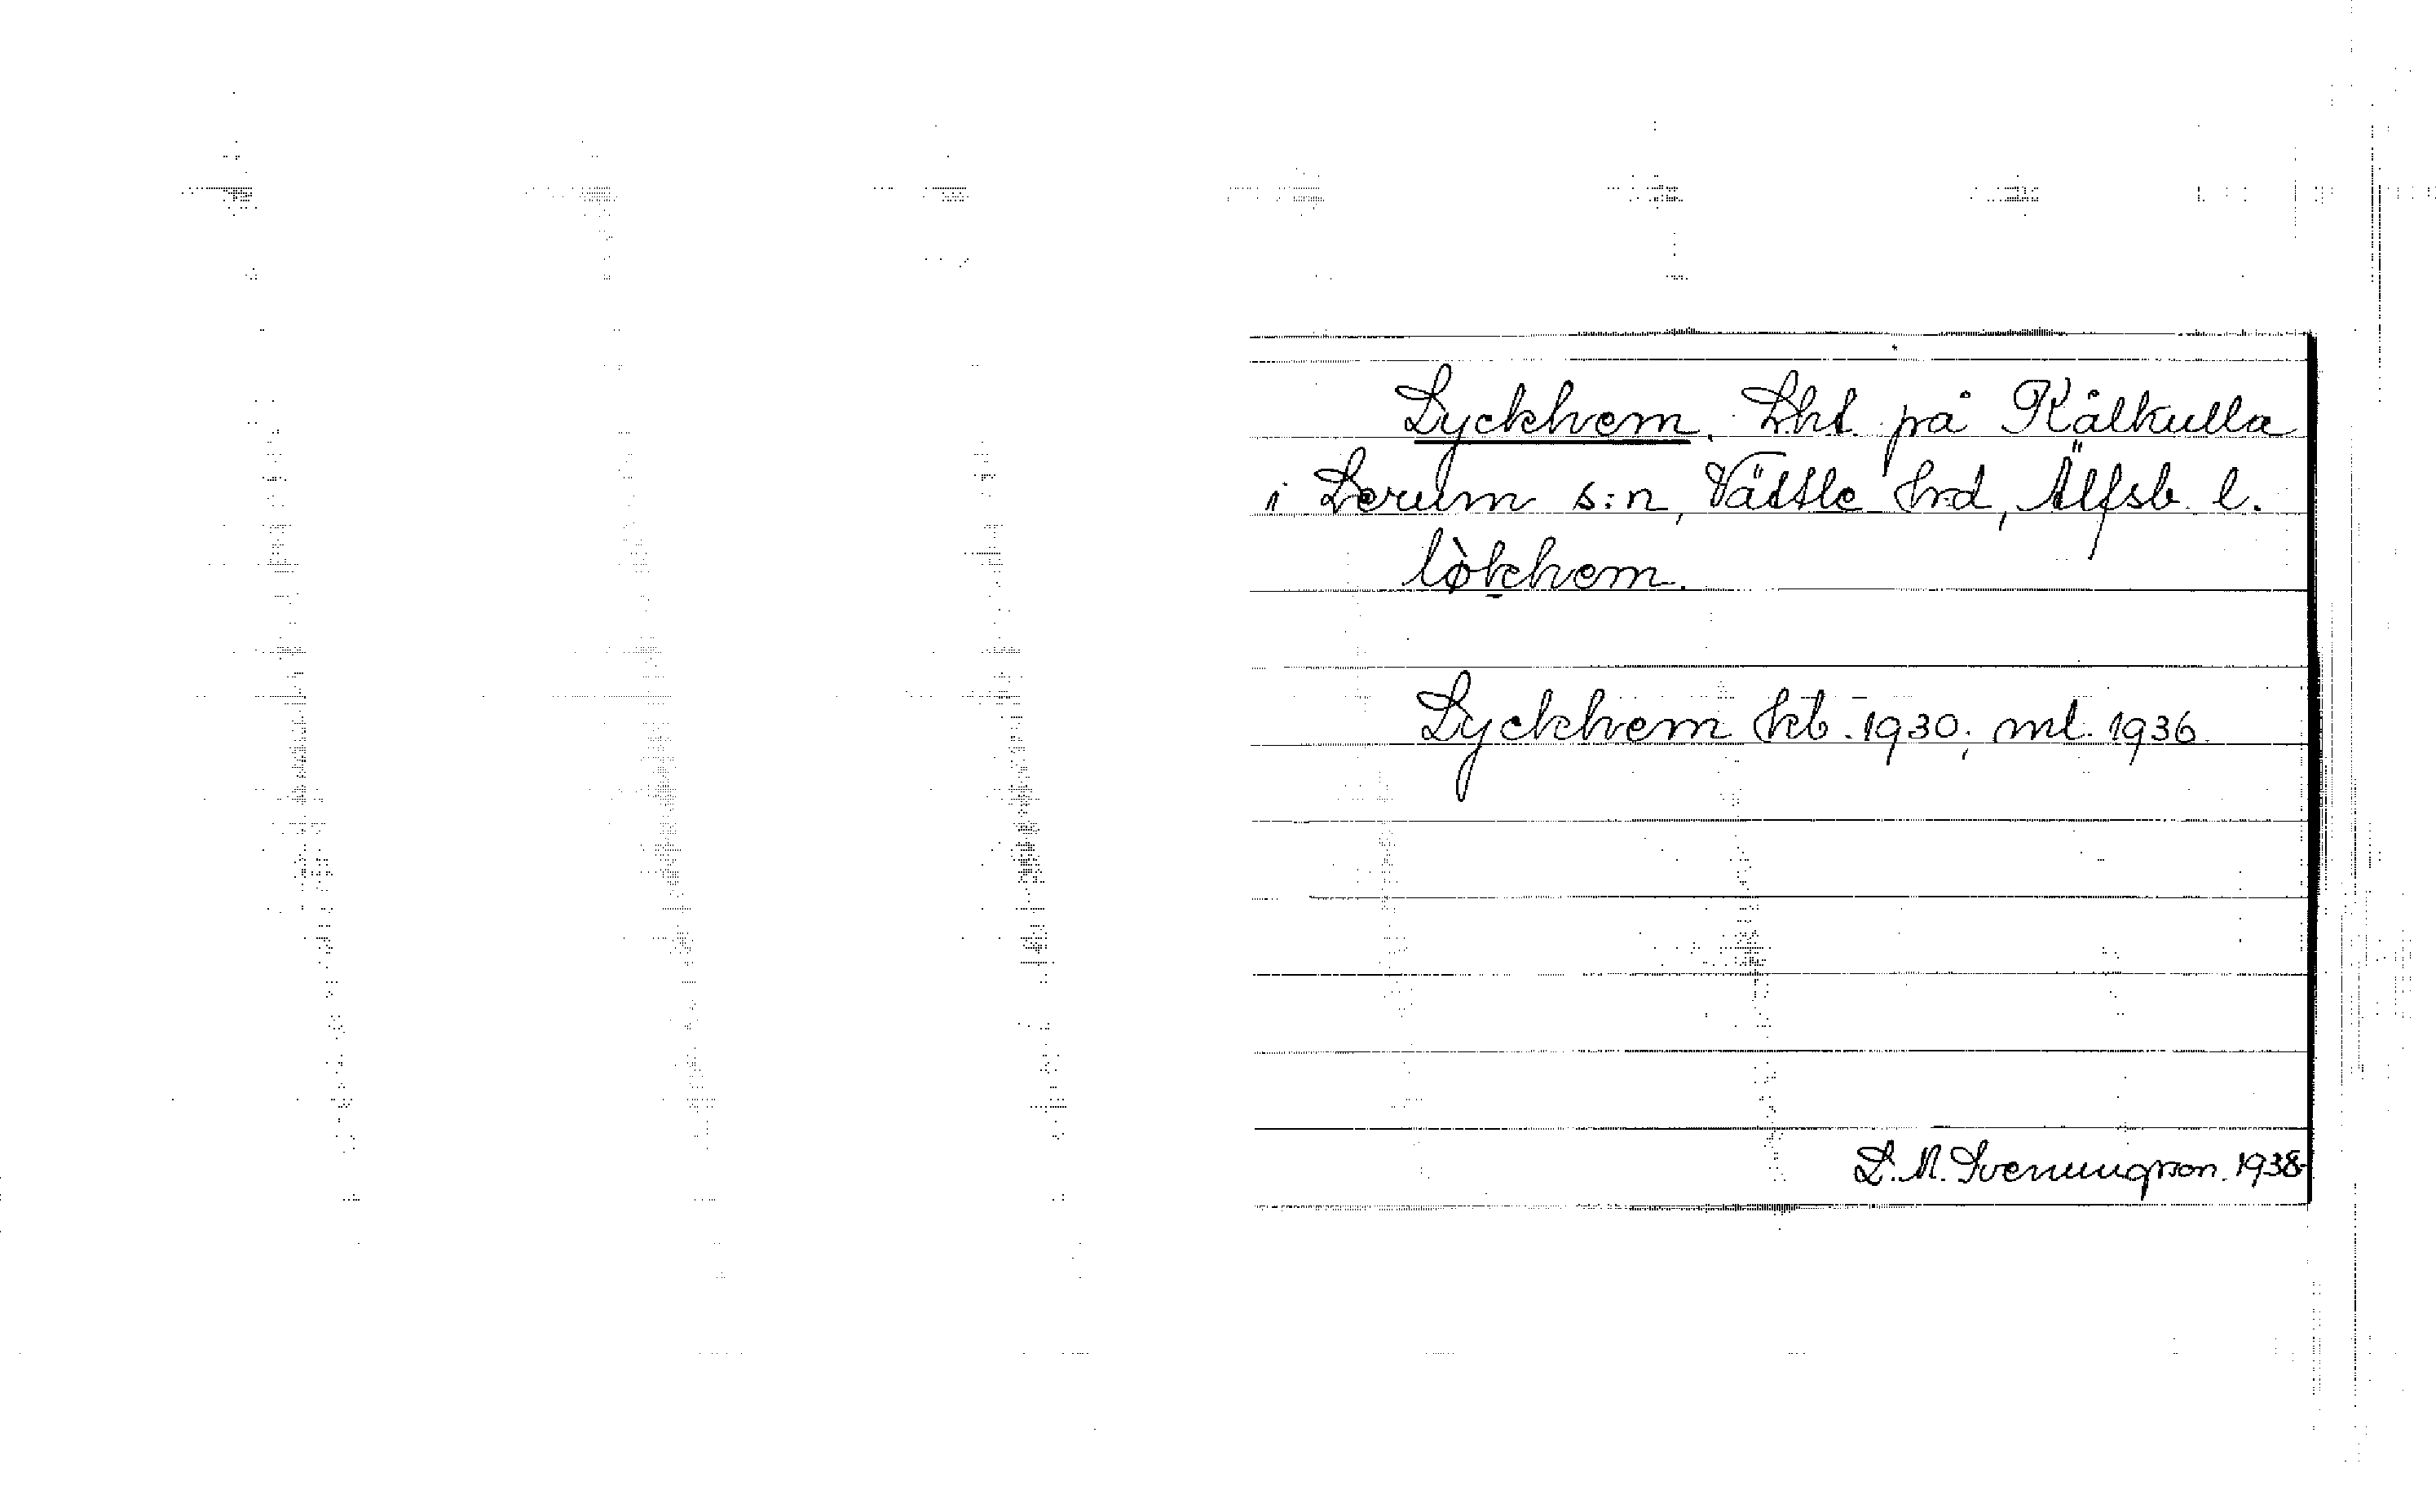 Lyckhem. Lht. på Kålkulla
i Lerum s:n, Vättle hrd, Älfsb. l.
lø̀khem.
Lyckhem kb. 1930; ml. 1936.
L. M. Svenungson. 1938